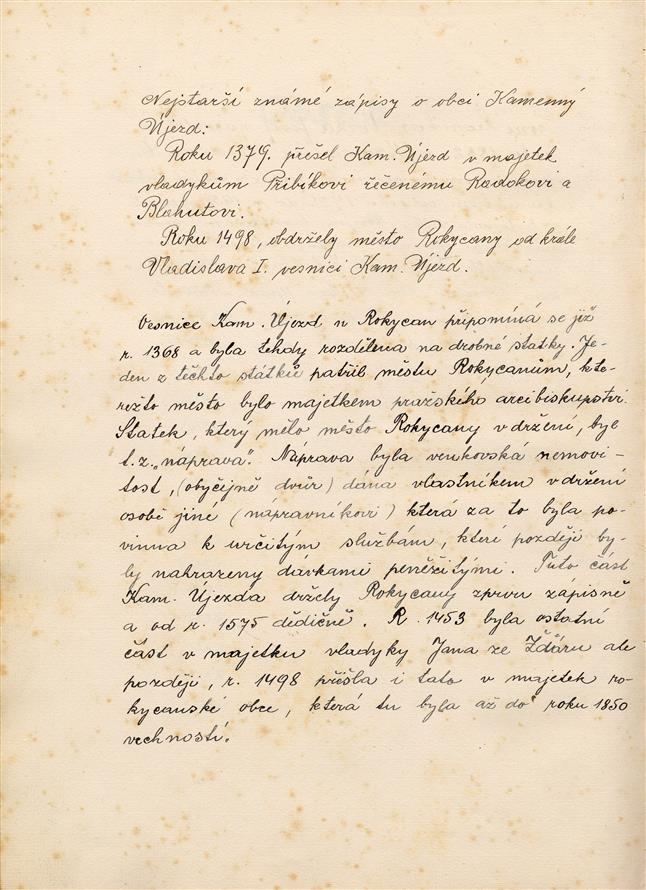 Nejstarší známé zápisy o obci Kamenný
Újezd:
Roku 1379. přešel Kam. Újezd v majetek
vladykům Přibíkovi řečenému Radokovi a
Blahutovi.
Roku 1498, obdržely město Rokycany od krále
Vladislava I. vesnici Kam. Újezd.
Vesnice Kam. Újezd u Rokycan připomíná se již
r. 1368 a byla tehdy rozdělena na drobné statky. Je-
den z těchto státků patřil městu Rokycanům, kte-
režto město bylo majetkem pražského arcibiskupství.
Statek, který mělo město Rokycany v držení, byl
t. z. „náprava". Náprava byla venkovská nemovi-
tost, (obyčejně dvůr) dána vlastníkem v držení
osobě jiné (nápravníkovi) která za to byla po-
vinna k určitým službám, které později by-
ly nahrazeny dávkami peněžitými. Tuto část
Kam. Újezda držely Rokycany zprvu zápisně
a od r. 1575 dědičně. R. 1453 byla ostatní
část v majetku vladyky Jana ze Žďáru ale
později, r. 1498 přešla i tato v majetek ro-
kycanské obce, která tu byla až do roku 1850
vrchností.